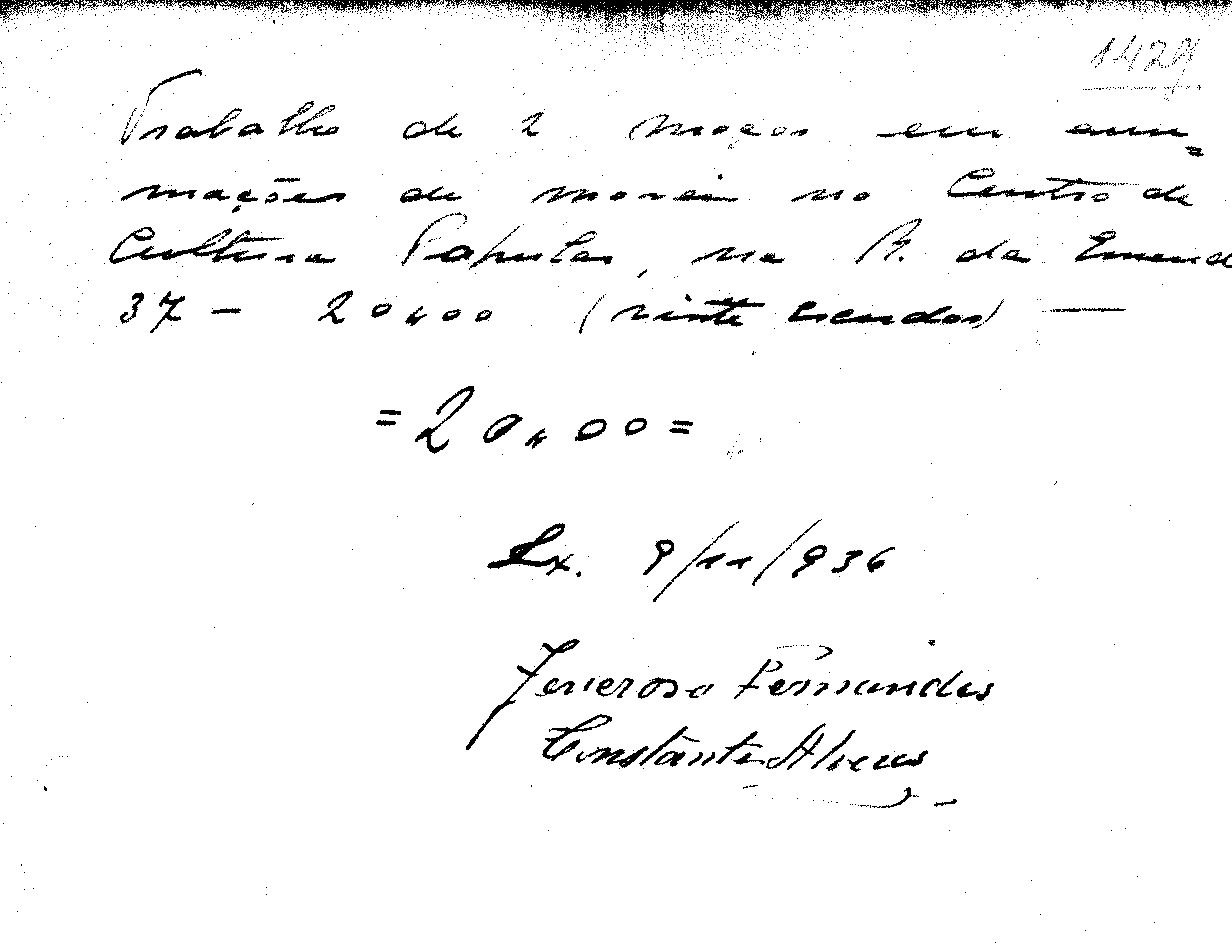 1429
Trabalho de 2 moços em arru=
mações de moveis no Centro de
Cultura Popular, na R. da Emend
37 — 20"00 (vinte escudos) —
= 20"00 =
Lx. 9/11/936
Generoso Fernandes
Constante Alves